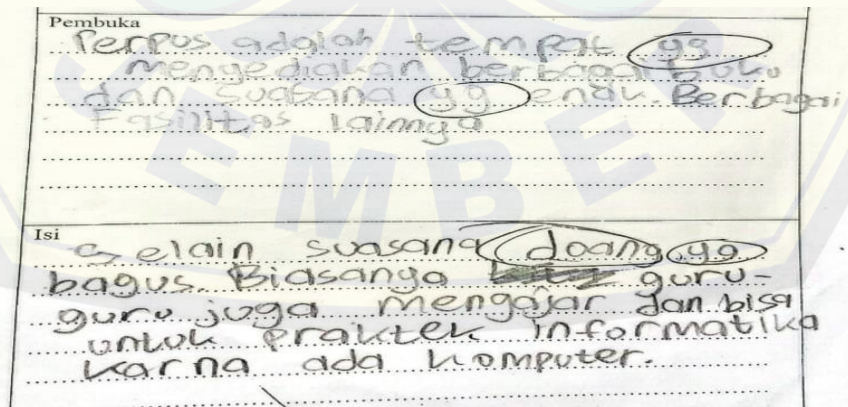 Pembuka
Perpus adalah tempat yg
menyediakan berbagai buku
dan suasana yg enak. Berbagai
Fasilitas lainnya
Isi
Selain suasana doang yg
bagus. Biasanya guru-
guru juga mengajar dan bisa
untuk praktek informatika
karna ada komputer.